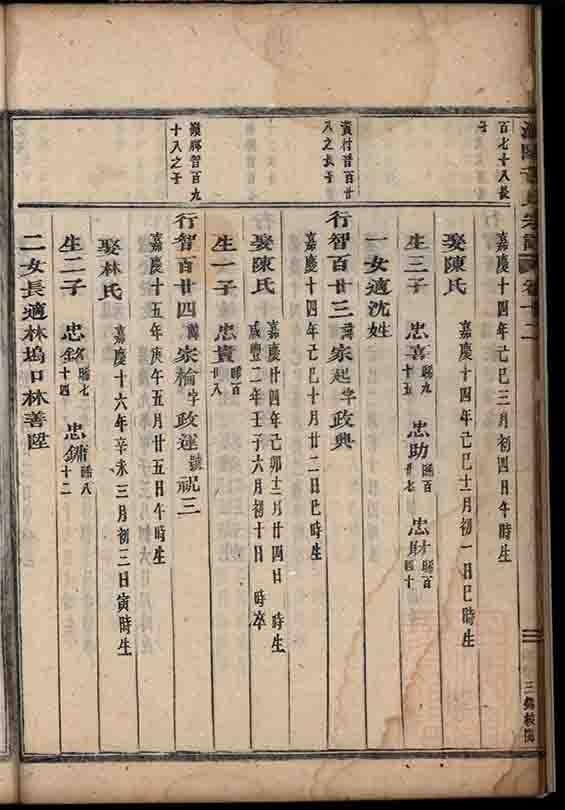 宗譜 卷十二
百七十八長
子
嘉慶十四年己巳三月初四日午時生
娶陳氏 嘉慶十四年己巳十一月初一日巳時生
生三子 忠喜 睎九十五 忠助 睎百廿七 忠財 睎百四十
一女適沈姓
資村晋百廿
八之長子
行智百廿三 諱宗起字政興
嘉慶十四年己巳十月廿二日巳時生
娶陳氏 嘉慶廿四年己卯十二月廿四日 時生
咸豐二年壬子六月初十日 時卒
生一子 忠貴 睎百廿八
晋百九
十八之子
行智百廿四 諱宗榆字政運號祝三
嘉慶十五年庚午五月廿五日午時生
娶林氏 嘉慶十六年辛未三月初三日寅時生
生二子 忠銘 睎七十四 忠鏞 睎八十二
二女長適林塢口林善陞